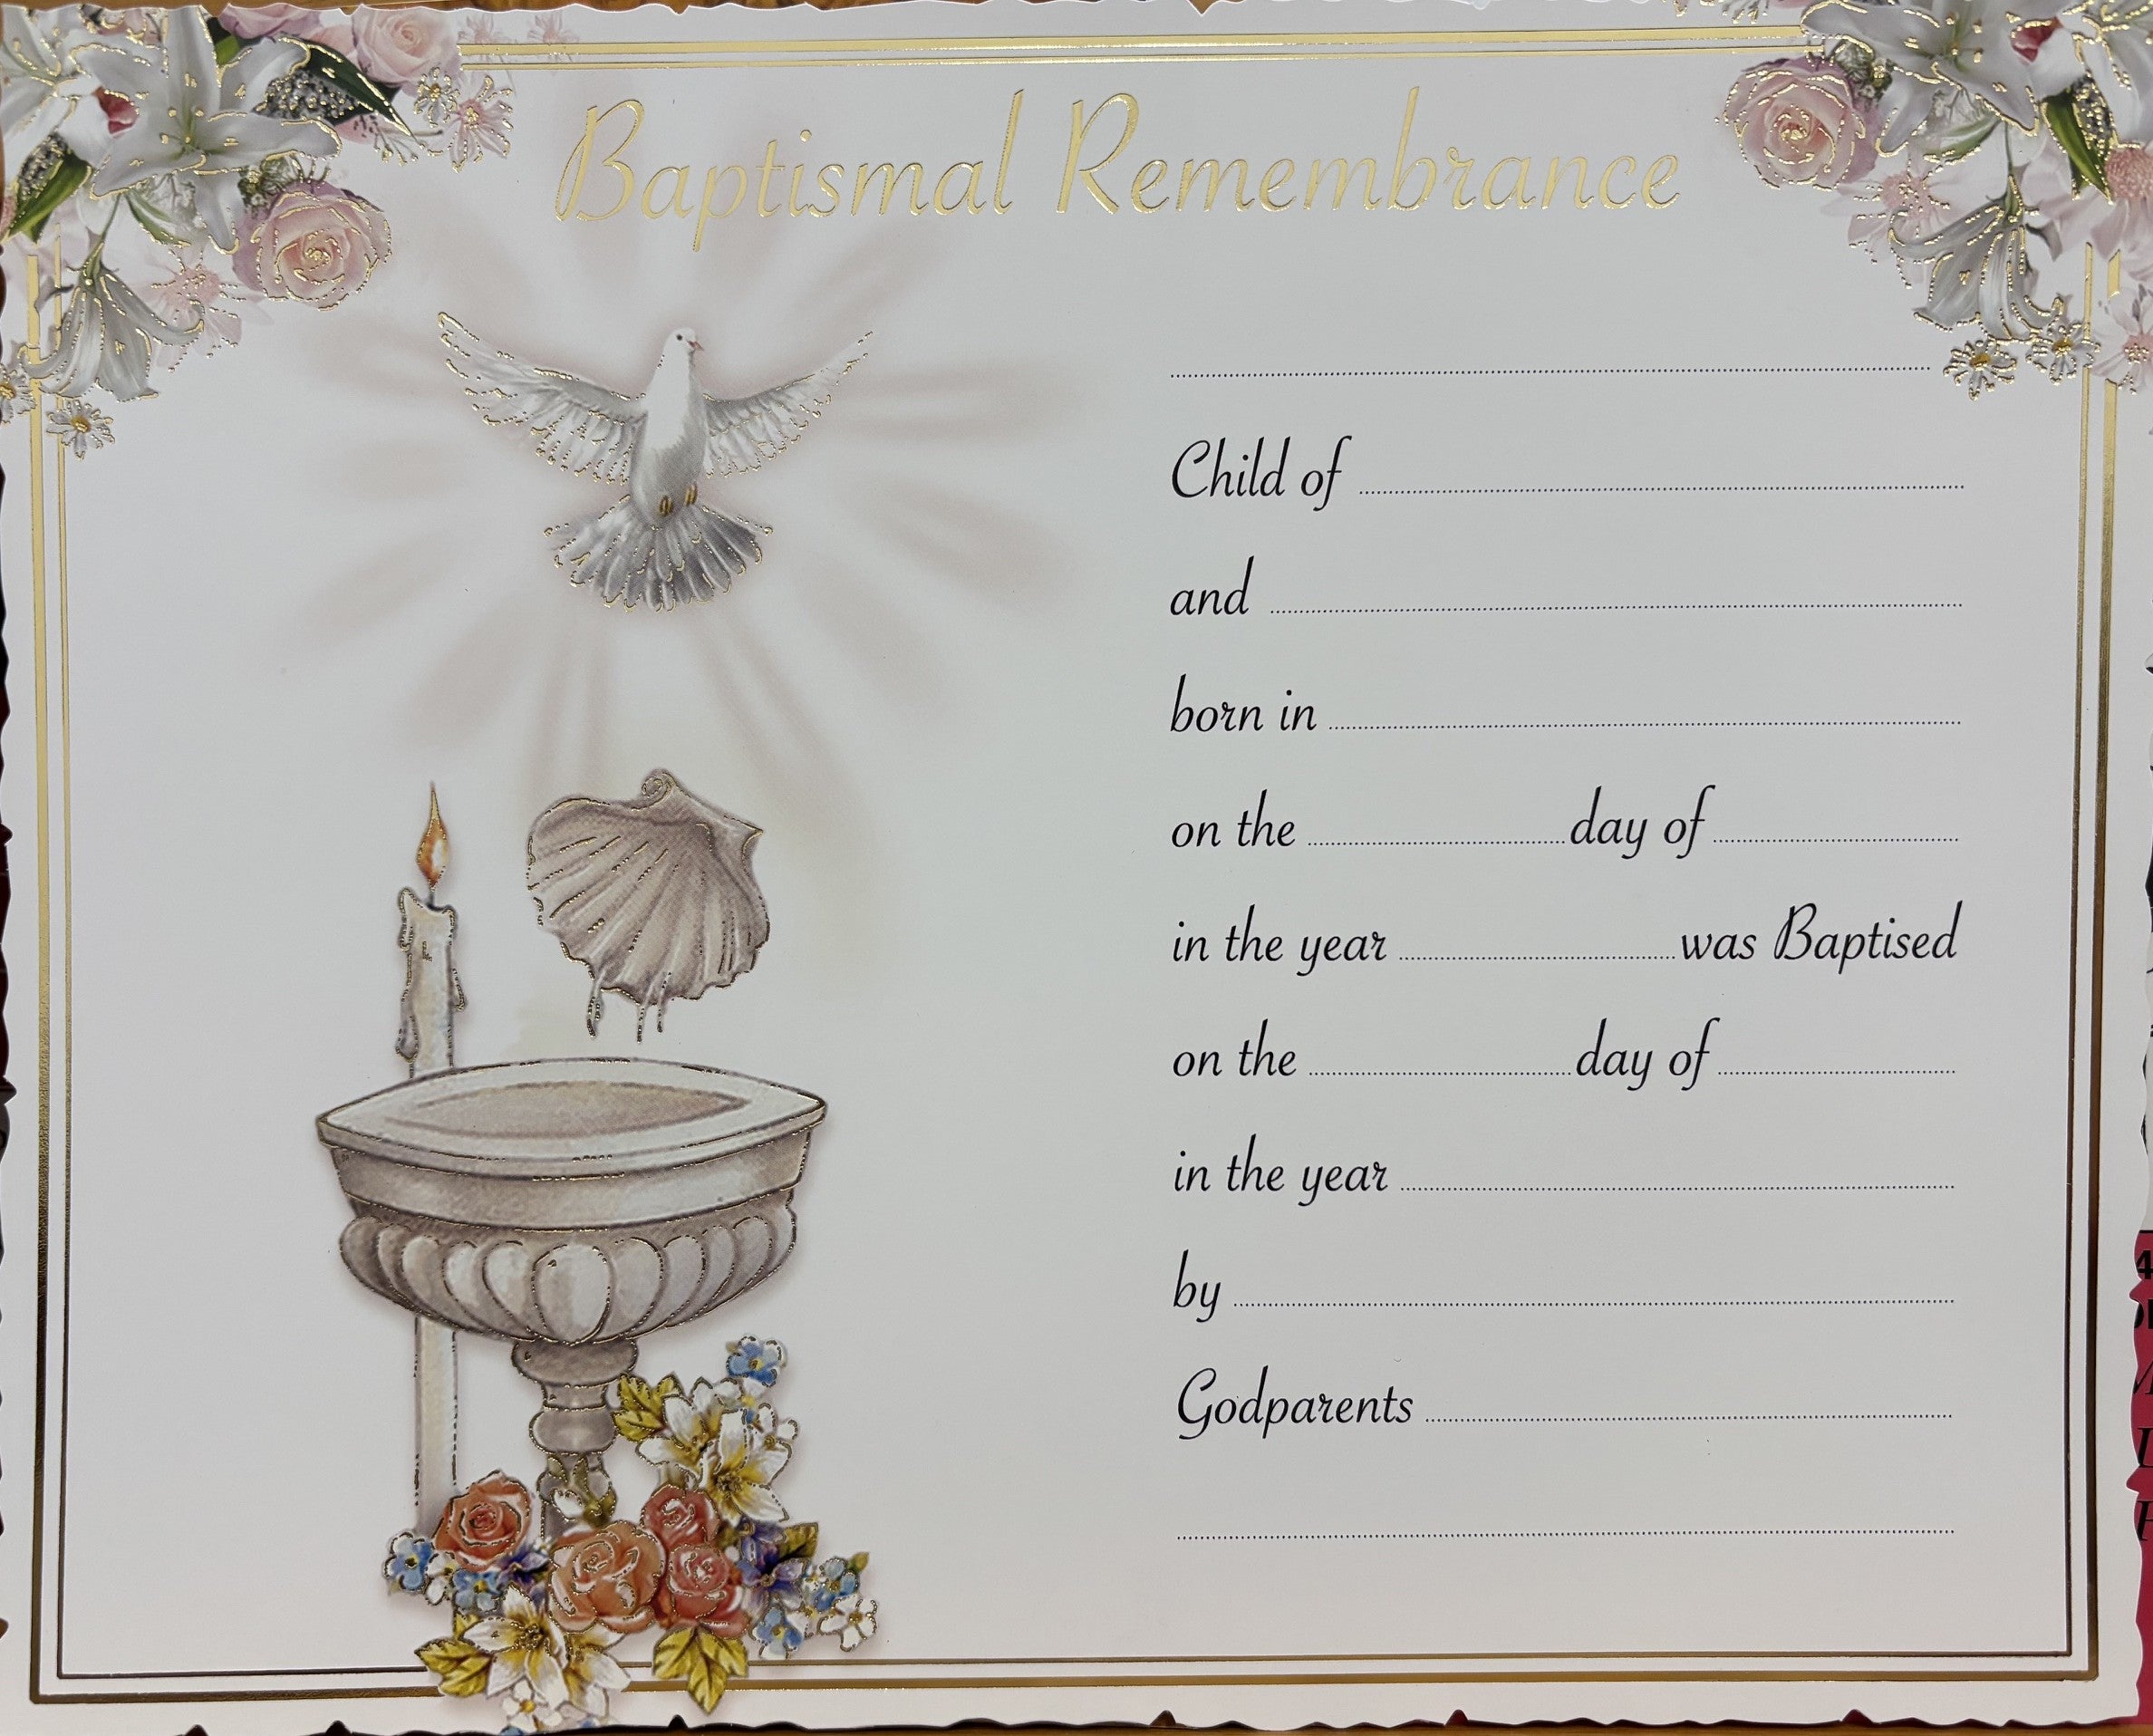 Baptismal Remembrance
Child of
and
born in
on the day of
in the year was Baptised
on the day of
in the year
by
Godparents